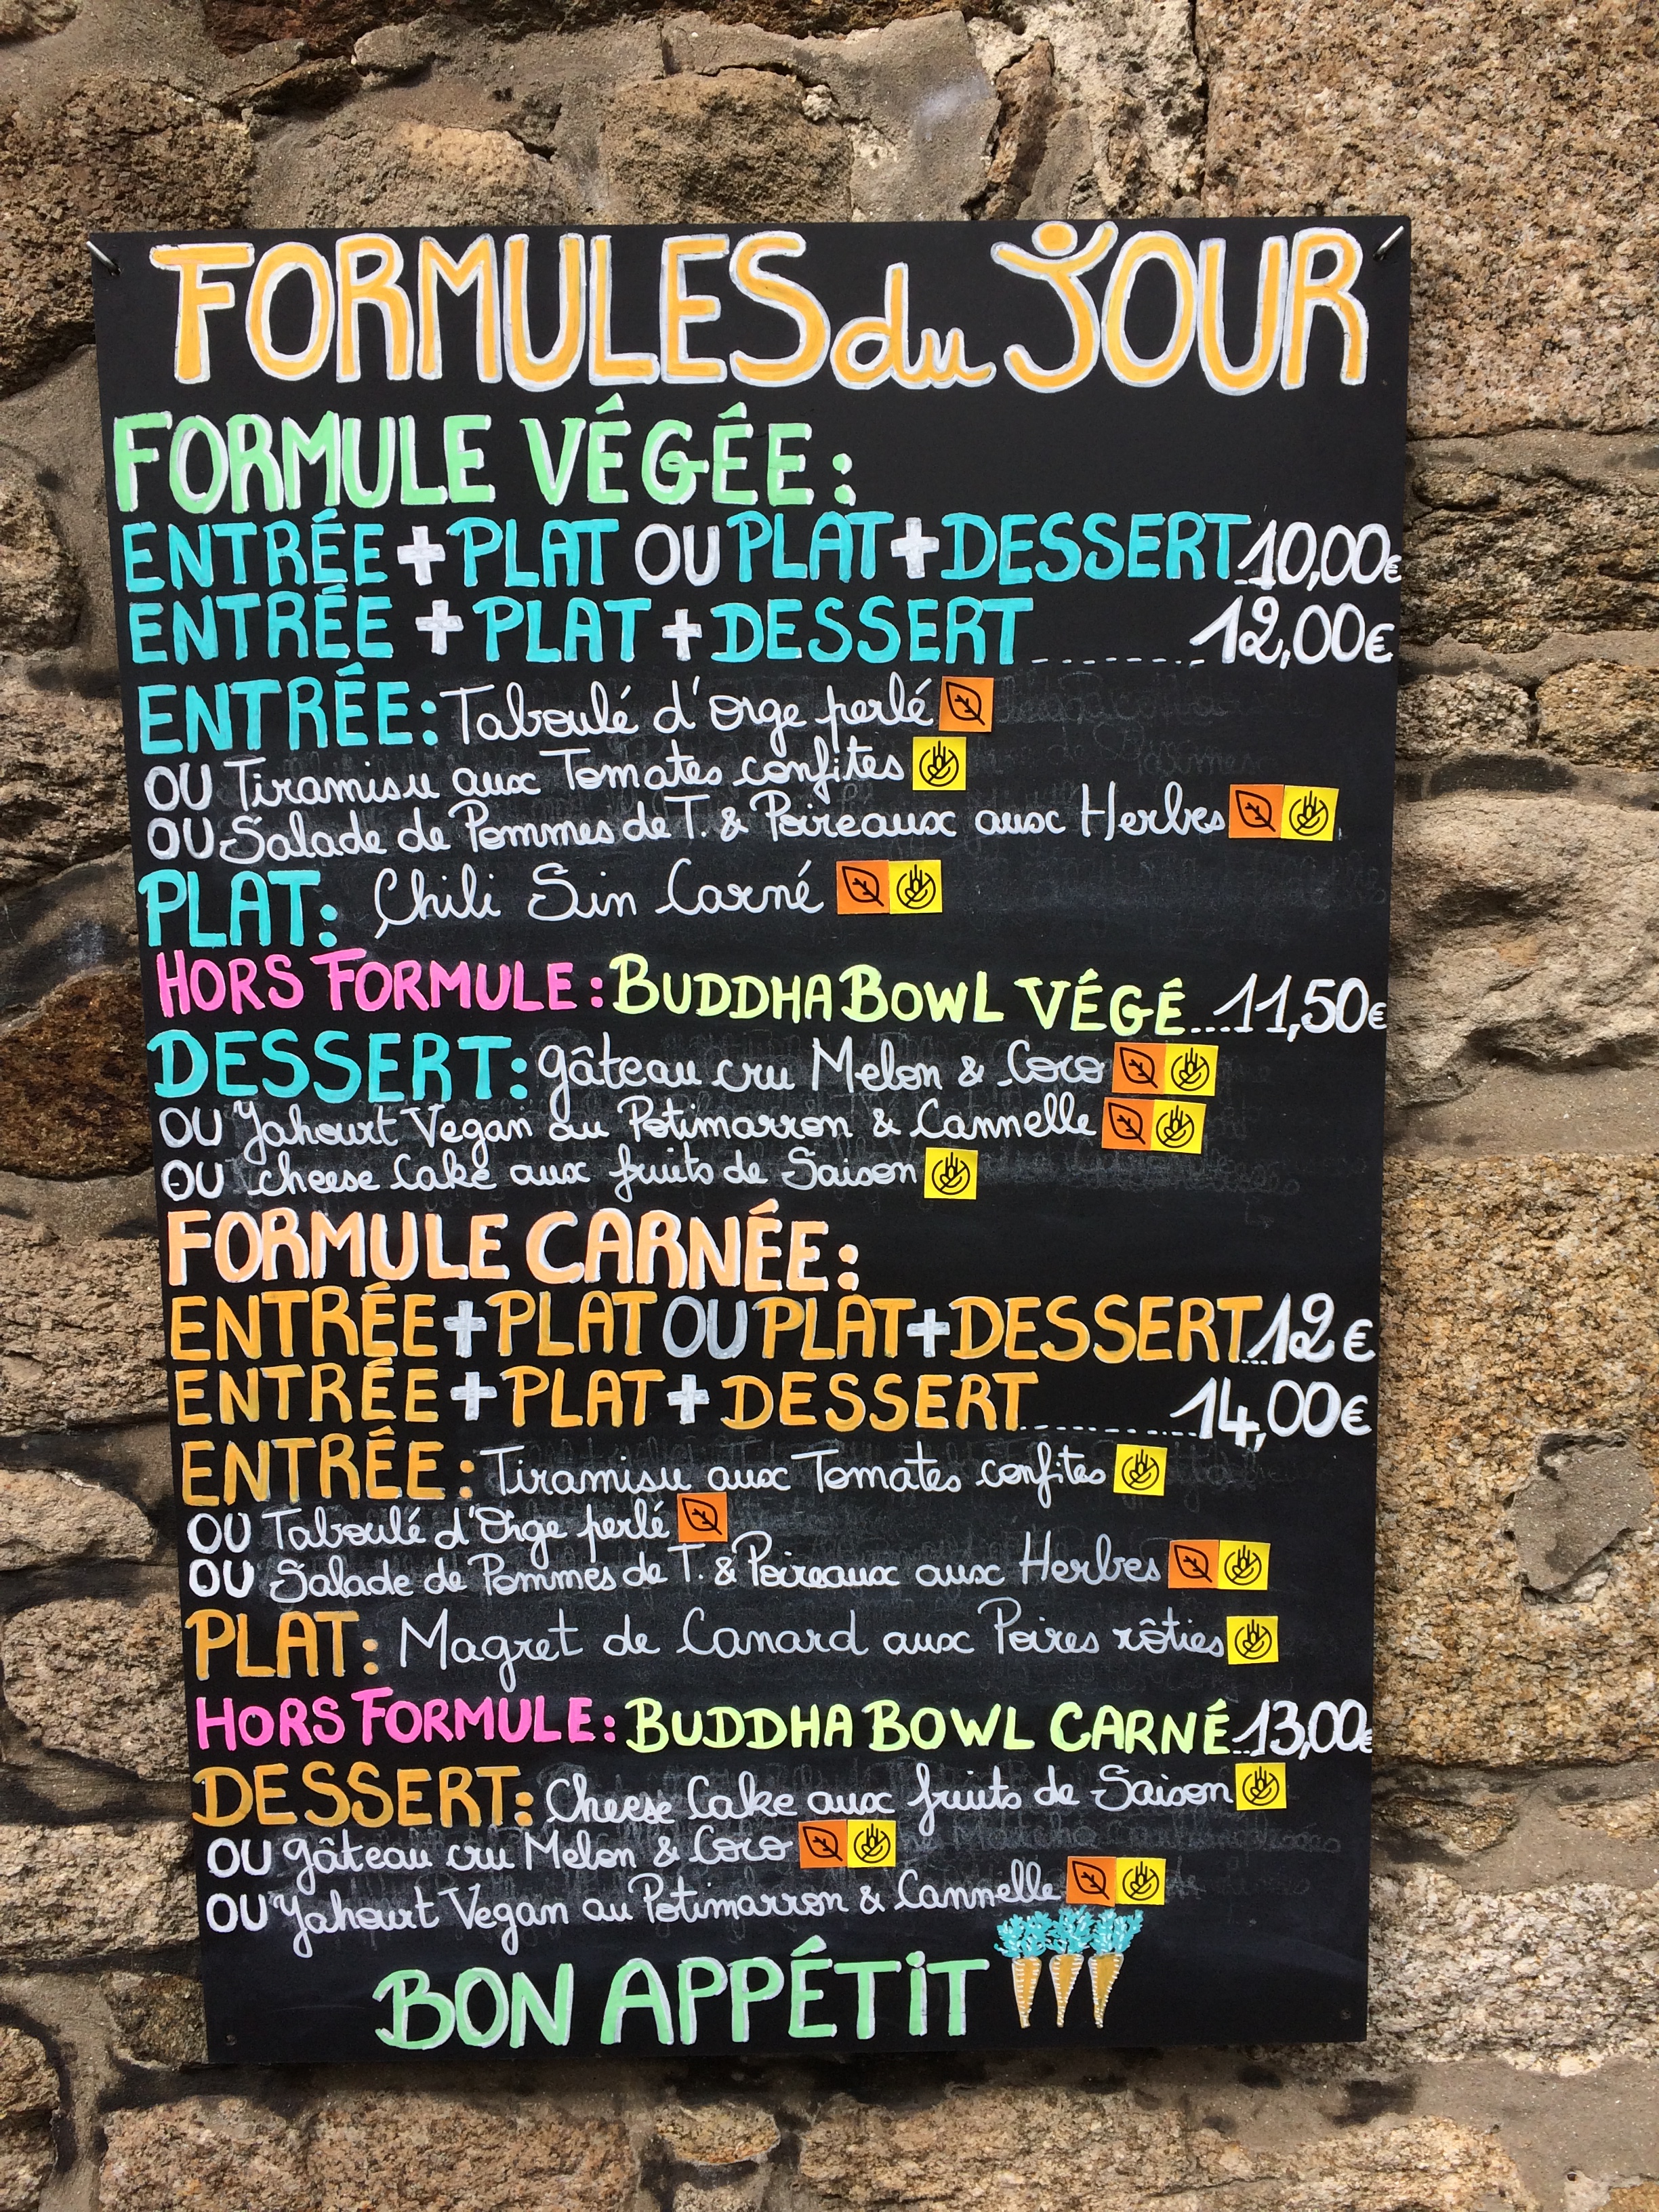 FORMULES du JOUR
FORMULE VÉGÉE :
ENTRÉE + PLAT OU PLAT + DESSERT...10,00€
ENTRÉE + PLAT + DESSERT.........12,00€
ENTRÉE: Taboulé d'Orge perlé
OU Tiramisu aux Tomates confites
OU Salade de Pommes de T. & Poireaux aux Herbes
PLAT: Chili Sin Carné
HORS FORMULE : BUDDHA BOWL VÉGÉ...11,50€
DESSERT: gâteau cru Melon & Coco
OU Yahourt Vegan au Potimarron & Cannelle
OU cheese Cake aux fruits de Saison
FORMULE CARNÉE :
ENTRÉE + PLAT OU PLAT + DESSERT...12€
ENTRÉE + PLAT + DESSERT.........14,00€
ENTRÉE : Tiramisu aux Tomates confites
OU Taboulé d'Orge perlé
OU Salade de Pommes de T. & Poireaux aux Herbes
PLAT: Magret de Canard aux Poires rôties
HORS FORMULE: BUDDHA BOWL CARNÉ...13,00€
DESSERT: Cheese Cake aux fruits de Saison
OU gâteau cru Melon & Coco
OU Yahourt Vegan au Potimarron & Cannelle
BON APPÉTiT